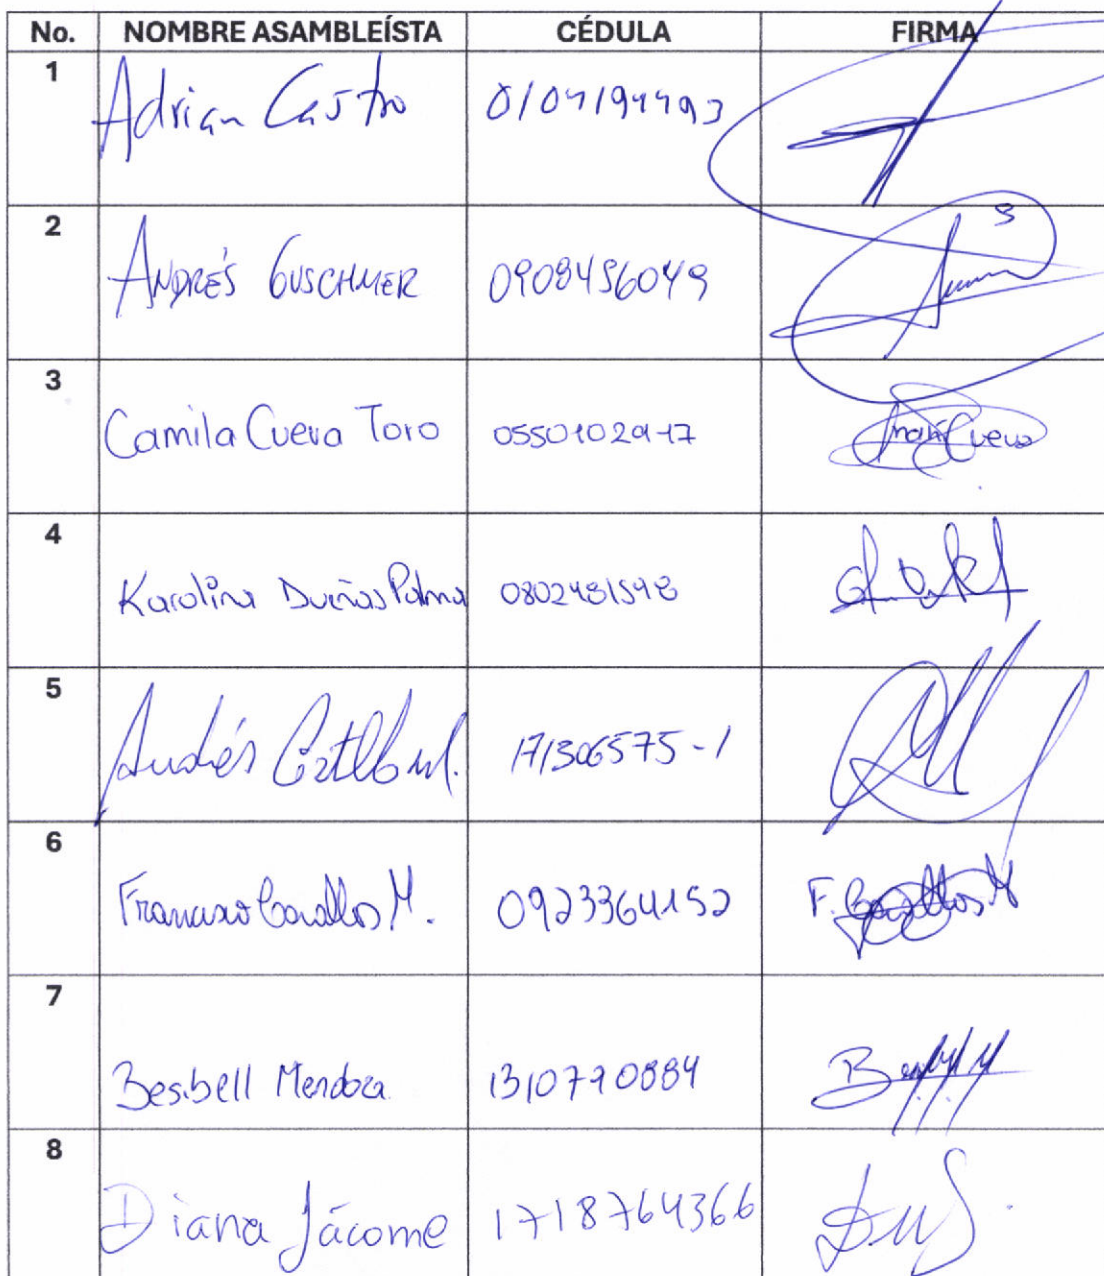 No. NOMBRE ASAMBLEÍSTA CÉDULA FIRMA
1 Adrian Castro 0104194493
2 ANDRÉS GUSCHMER 0908456049
3 Camila Cueva Toro 0550102917 Cueva
4 Karolina Dueñas Palma 0802481548
5 Andrés 171306575-1
6 Francisco Cevallos M. 0923364152 F. Cevallos M
7 Besibell Mendoza 1310770884
8 Diana Jácome 1718764366